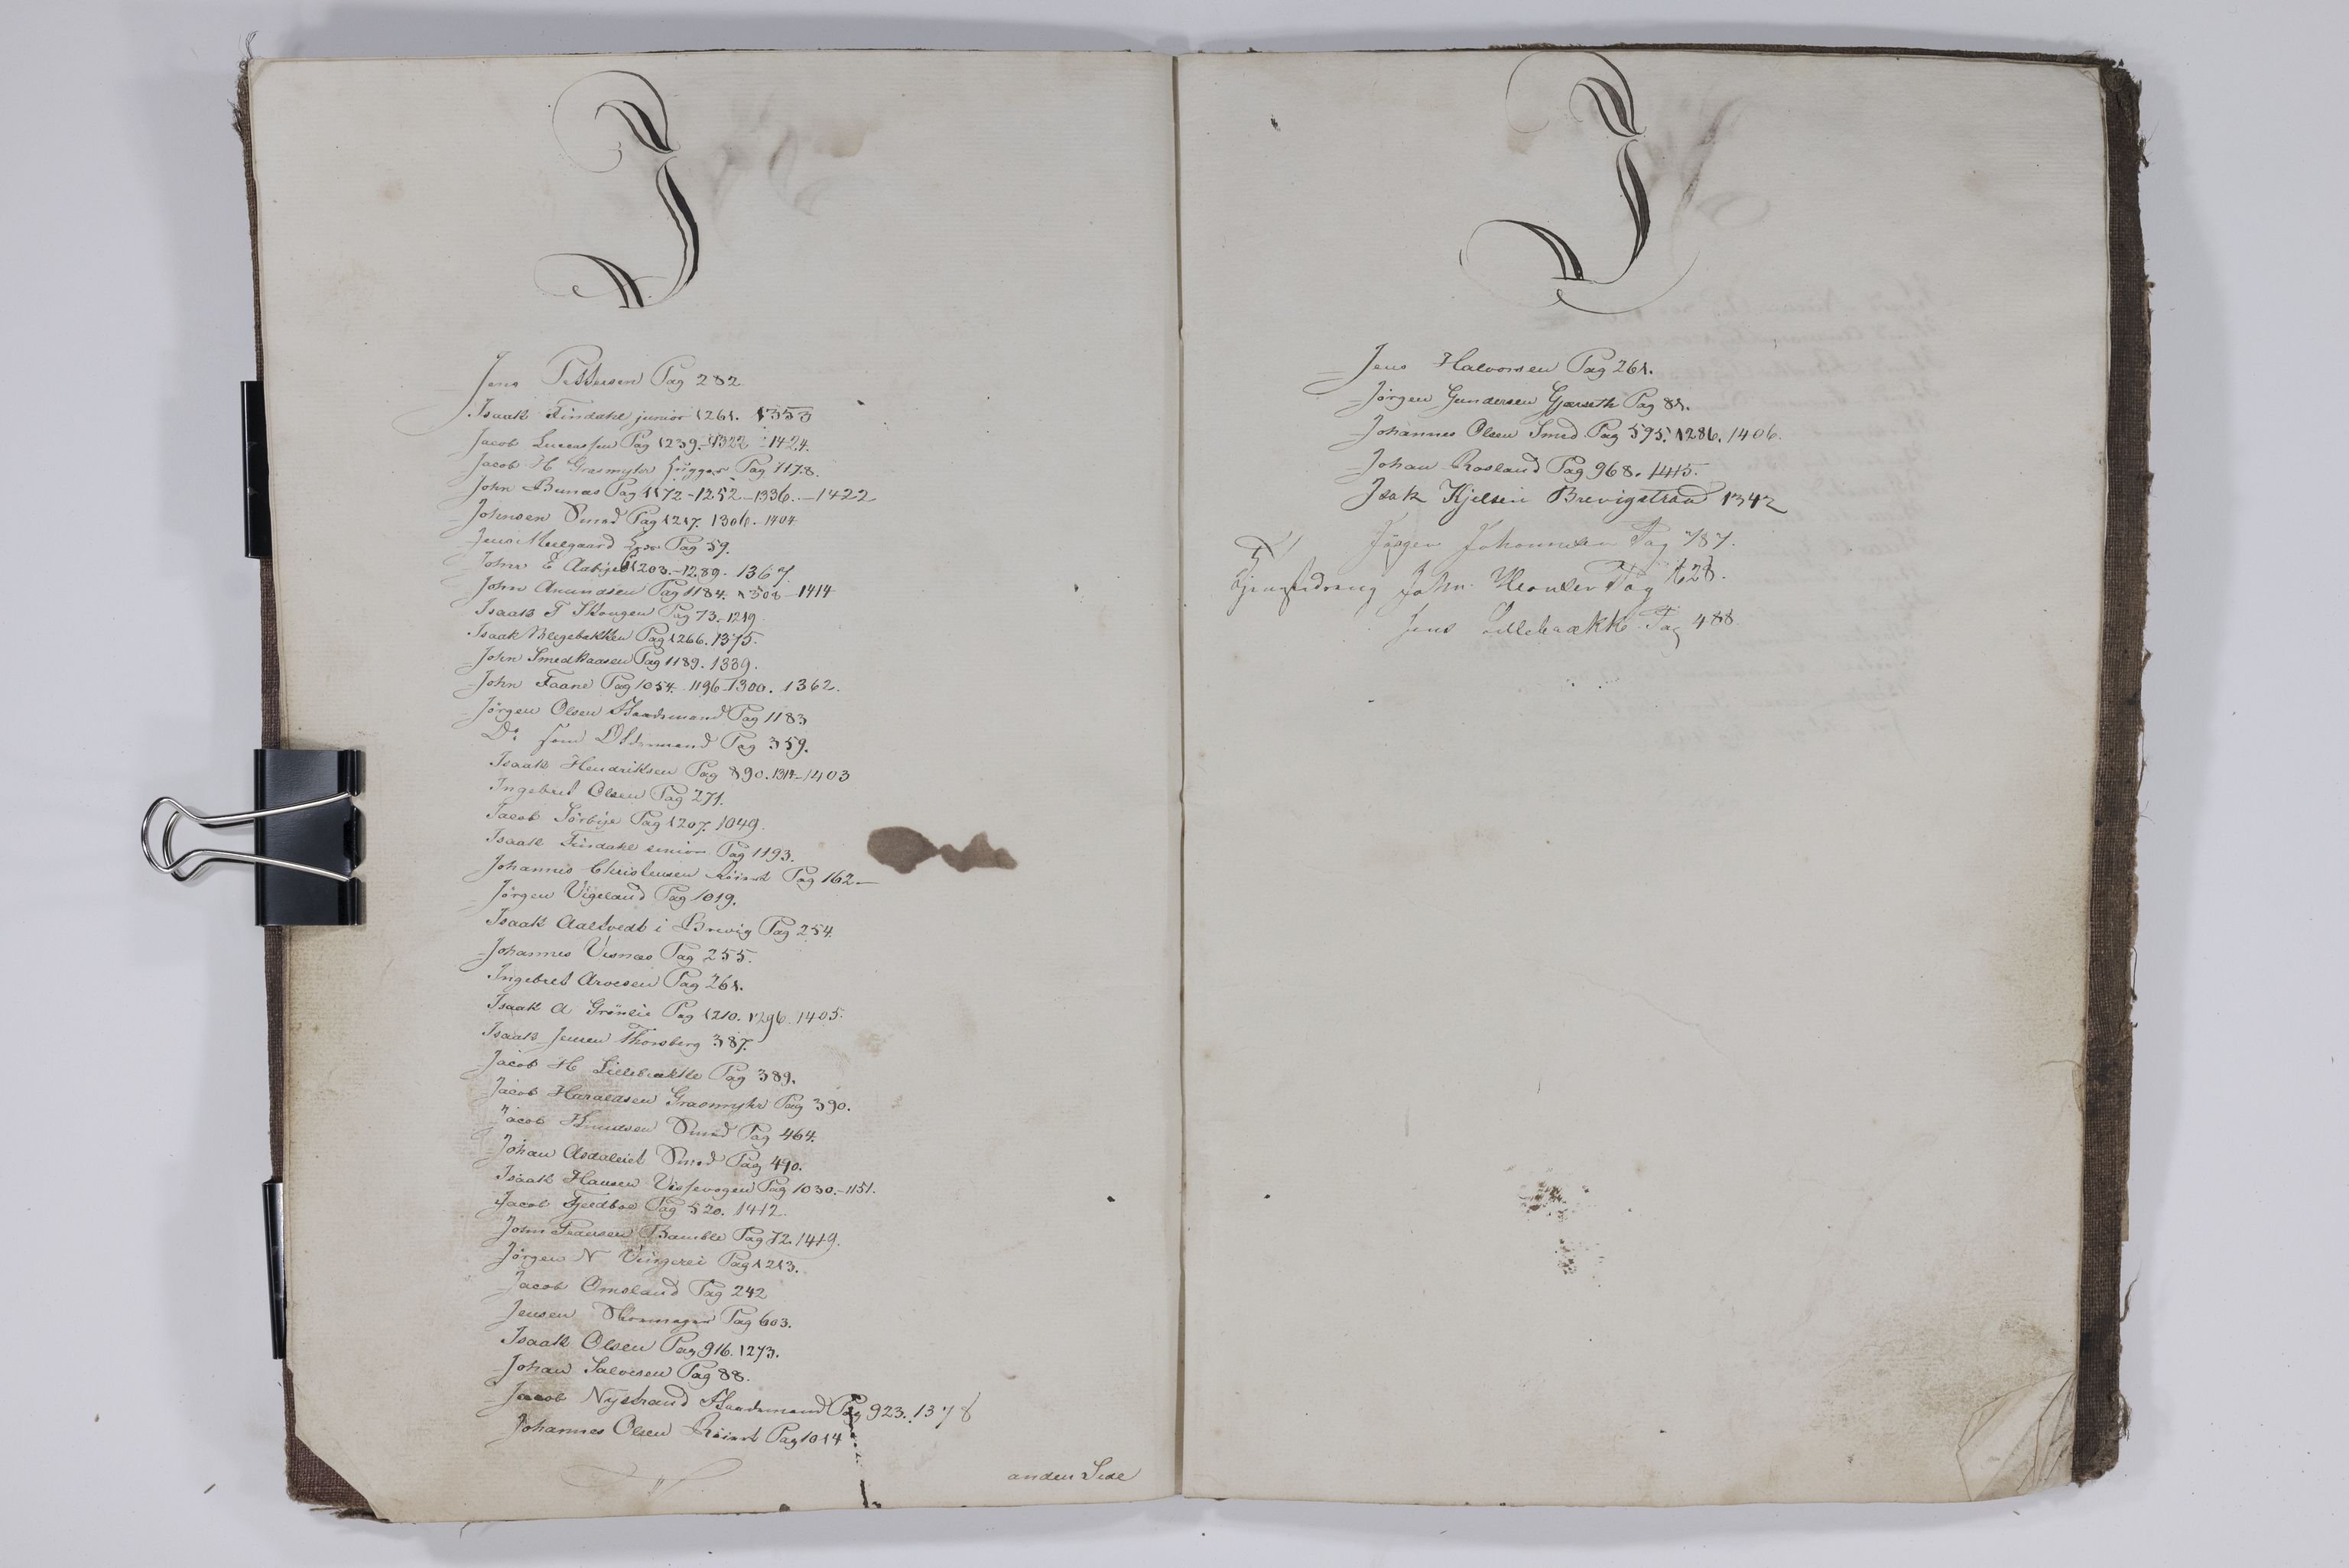 J
Jens Pettersen Pag 282
Isaak Findahl junior 1261. 1353
Jacob Lucassen Pag 1239.-1322-1424.
Jacob H Græsmyhr hugger Pag 1178.
John Bunæs Pag 1172-1252-1336.-1422
Johnsen Smed Pag 1217. 1306.-1404
Jens Melegaard Pag 59.
John E Aabye 1203.-1289. 1367.
John Amundsen Pag 1184. 1308-1414
Isaak T Skougen Pag 73.-1219
Isaak Blegebakken Pag 1266. 1375.
John Smedhaasen Pag 1189. 1339.
John Faane Pag 1054.-1196-1300. 1362.
Jörgen Olsen Haadsmand Pag 1183
Do som Oldermand Pag 359.
Isaak Hendriksen Pag 890. 1314-1403
Ingebret Olsen Pag 271.
Jacob Sörbye Pag 1207. 1049.
Isaak Findahl senior Pag 1193.
Johannes Christensen Röinst Pag 162
Jörgen Vigeland Pag 1019.
Isaak Aaltvedt i Brevig Pag 254.
Johannes Visnæs Pag 255.
Ingebret Arvesen Pag 261.
Isaak A Grönlie Pag 1210. 1296. 1405.
Isaak Jensen Thorsberg 387.
Jacob H Lillebække Pag 389.
Jacob Haraldsen Græsmyhr Pag 390.
Jacob Knudsen Smed Pag 464.
Johan Asdaleiet Smed Pag 490.
Isaak Hansen Vissevogen Pag 1030.-1151.
Jacob Fjeldboe Pag 520. 1412.
John Fransen Bamble Pag 72. 1419.
Jörgen N Vingerei Pag 1213.
Jacob Omsland Pag 242
Jensen Skomager Pag 603.
Isaak Olsen Pag 916. 1273.
Johan Salvesen Pag 88.
Jacob Nystrand Haadsmand Pag 923. 1378
Johannes Olsen Röinst Pag 1014
anden Side
J
Jens Halvorsen Pag 261.
Jörgen Gundersen Gjærseth Pag 81.
Johannes Olsen Smed Pag 595. 1286. 1406.
Johan Rosland Pag 968. 1415.
Isak Kjelsen Brevigstrand 1342
Jörgen Johannsen Pag 787.
John Pag 628.
Jens Lillebække Pag 488.